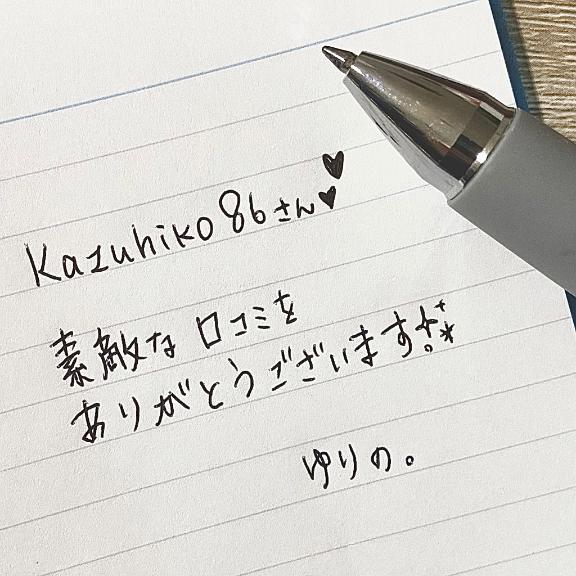 Kazuhiko86さん♥♥
素敵な口コミを
ありがとうございます!
ゆりの。